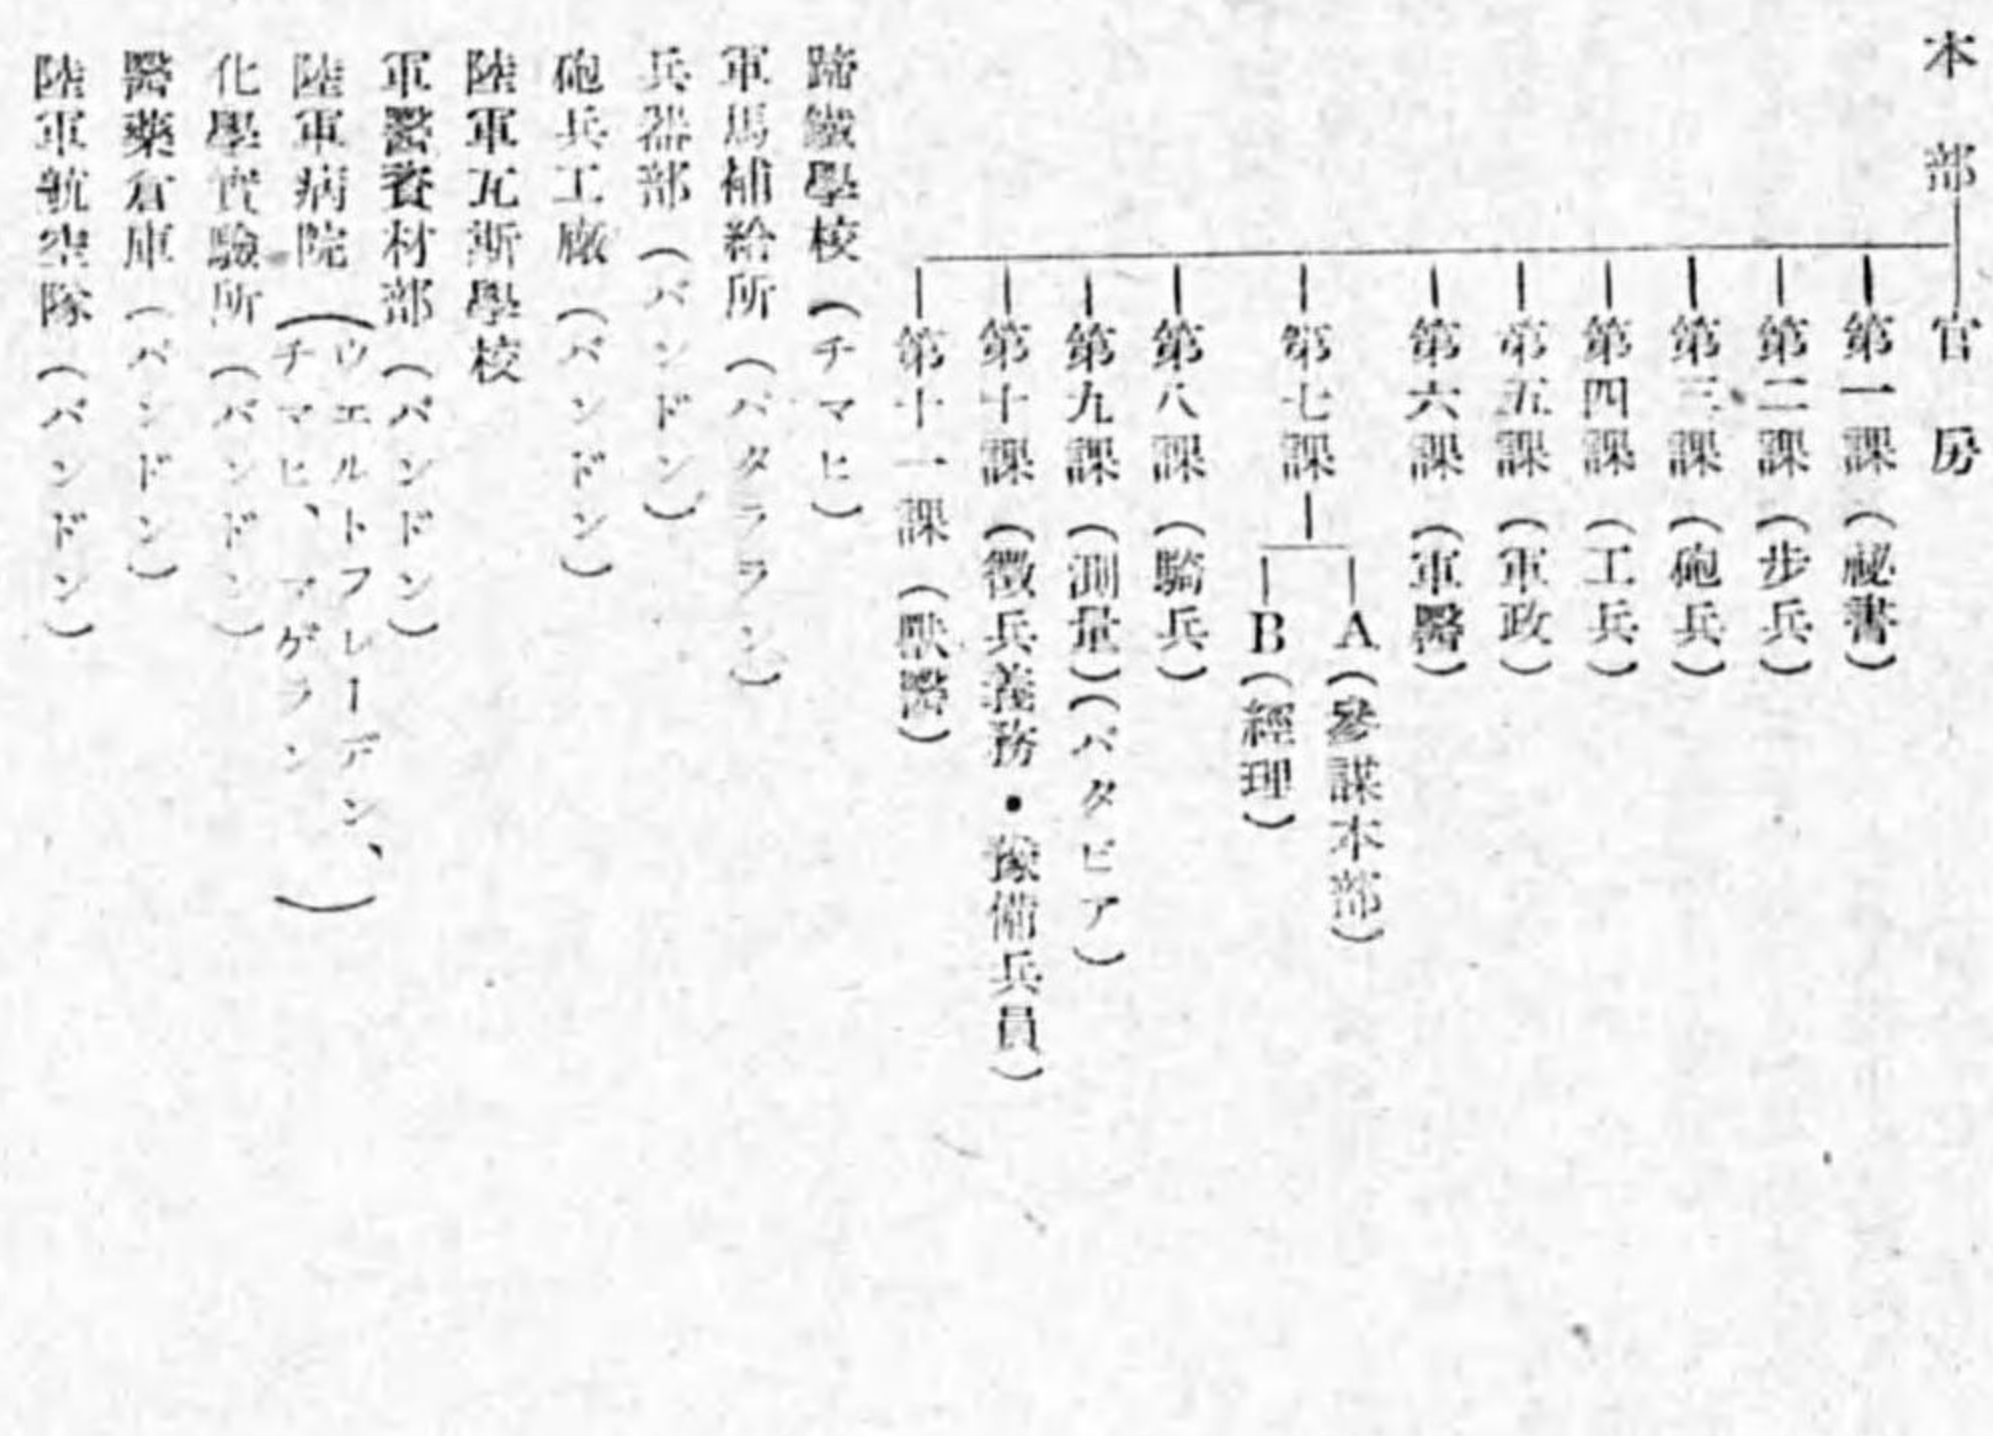 本部
官房
第一課(祕書)
第二課(步兵)
第三課(砲兵)
第四課(工兵)
第五課(軍政)
第六課(軍醫)
第七課
A(參謀本部)
B(經理)
第八課(騎兵)
第九課(測量)(バタビア)
第十課(徵兵義務・豫備兵員)
第十一課(獸醫)
蹄鐵學校(チマヒ)
軍馬補給所(パタララン)
兵器部(バンドン)
砲兵工廠(バンドン)
陸軍瓦斯學校
軍醫資材部(バンドン)
陸軍病院(ウエルトフレーデン、
チマヒ、マゲラン)
化學實驗所(バンドン)
醫藥倉庫(バンドン)
陸軍航空隊(バンドン)